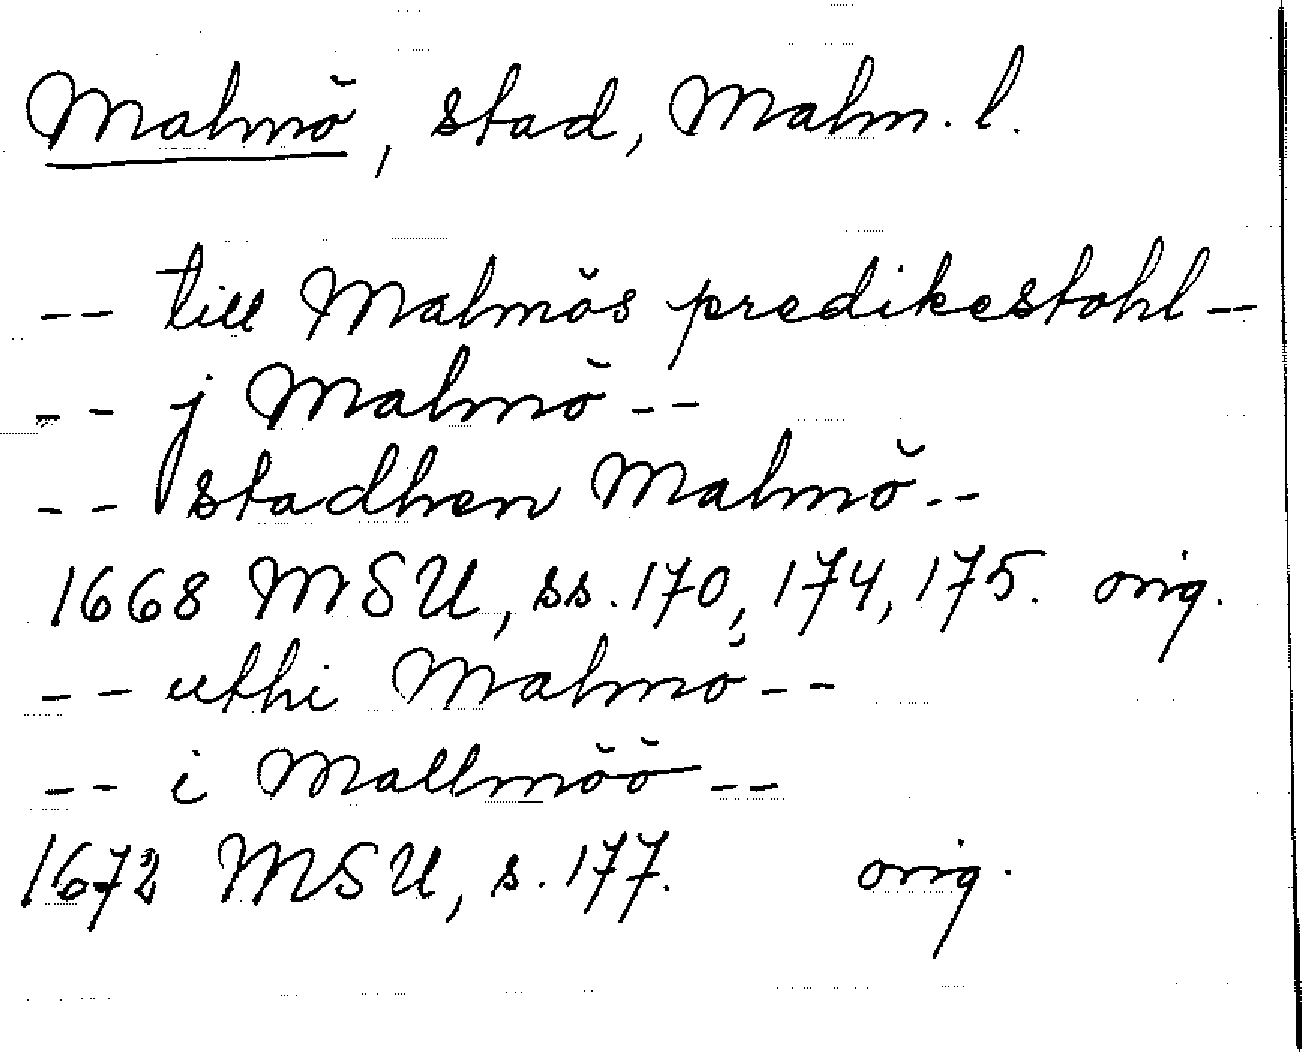 Malmö, stad, Malm. l.
-- till Malmös predikestohl --
-- j Malmö --
-- stadhen Malmö --
1668 MSU, ss. 170, 174, 175. orig.
-- uthi Malmö --
-- i Mallmöö --
1672 MSU, s. 177. orig.